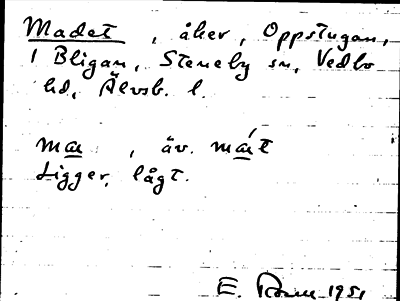 Madet, åker, Oppstugan,
1 Bligan, Steneby sn, Vedbo
hd, Älvsb. l.
ma, äv. mat
Ligger lågt.
E. 1951